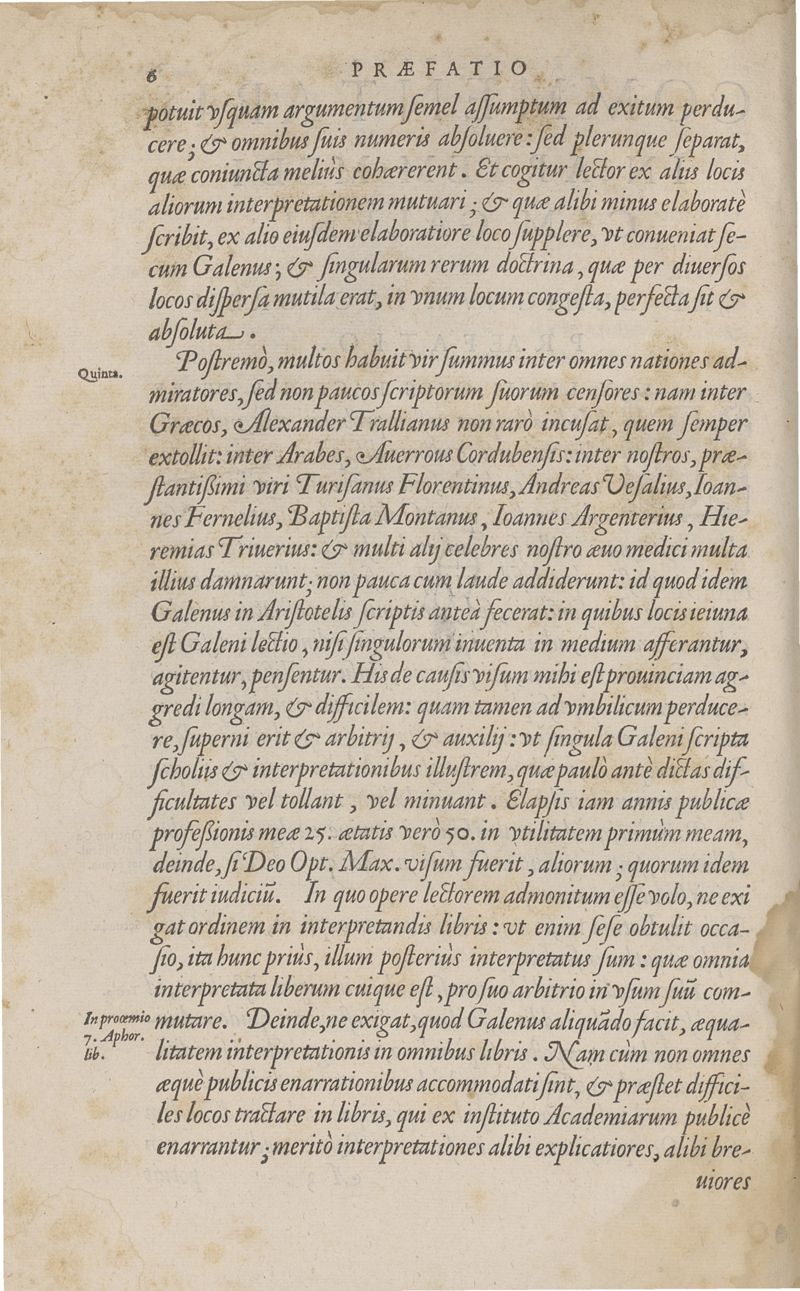 6 PRÆFATIO
potuit vſquam argumentum ſemel aſſumptum ad exitum perdu-
cere; & omnibus ſuis numeris abſoluere: ſed plerunque ſeparat,
quæ coniuncta meliùs cohærerent. Et cogitur lector ex aliis locis
aliorum interpretationem mutuari; & quæ alibi minus elaboratè
ſcribit, ex alio eiuſdem elaboratiore loco ſupplere, vt conueniat ſe-
cum Galenus; & ſingularum rerum doctrina, quæ per diuerſos
locos diſperſa mutila erat, in vnum locum congeſta, perfecta ſit &
abſoluta.
Quinta.
Poſtremò, multos habuit vir ſummus inter omnes nationes ad-
miratores, ſed non paucos ſcriptorum ſuorum cenſores: nam inter
Græcos, Alexander Trallianus non rarò incuſat, quem ſemper
extollit: inter Arabes, Auerrous Cordubenſis: inter noſtros, præ-
ſtantißimi viri Turiſanus Florentinus, Andreas Veſalius, Ioan-
nes Fernelius, Baptiſta Montanus, Ioannes Argenterius, Hie-
remias Triuerius: & multi alij celebres noſtro æuo medici multa
illius damnarunt; non pauca cum laude addiderunt: id quod idem
Galenus in Ariſtotelis ſcriptis anteà fecerat: in quibus locis ieiuna
eſt Galeni lectio, niſi ſingulorum inuenta in medium afferantur,
agitentur, penſentur. His de cauſis viſum mihi eſt prouinciam ag-
gredi longam, & difficilem: quam tamen ad vmbilicum perduce-
re, ſuperni erit & arbitrij, & auxilij: vt ſingula Galeni ſcripta
ſcholiis & interpretationibus illuſtrem, quæ paulò antè dictas dif-
ficultates vel tollant, vel minuant. Elapſis iam annis publicæ
profeßionis meæ 25. ætatis verò 50. in vtilitatem primùm meam,
deinde, ſi Deo Opt. Max. viſum fuerit, aliorum; quorum idem
fuerit iudiciũ. In quo opere lectorem admonitum eſſe volo, ne exi
gat ordinem in interpretandis libris: vt enim ſeſe obtulit occa-
ſio, ita hunc priùs, illum poſteriùs interpretatus ſum: quæ omnia
interpretata liberum cuique eſt, pro ſuo arbitrio in vſum ſuũ com-
mutare. Deinde, ne exigat, quod Galenus aliquãdo facit, æqua-
In proœmio
7. Aphor.
lib.
litatem interpretationis in omnibus libris. Nam cùm non omnes
æquè publicis enarrationibus accommodati ſint, & præſtet diffici-
les locos tractare in libris, qui ex inſtituto Academiarum publicè
enarrantur; meritò interpretationes alibi explicatiores, alibi bre-
uiores